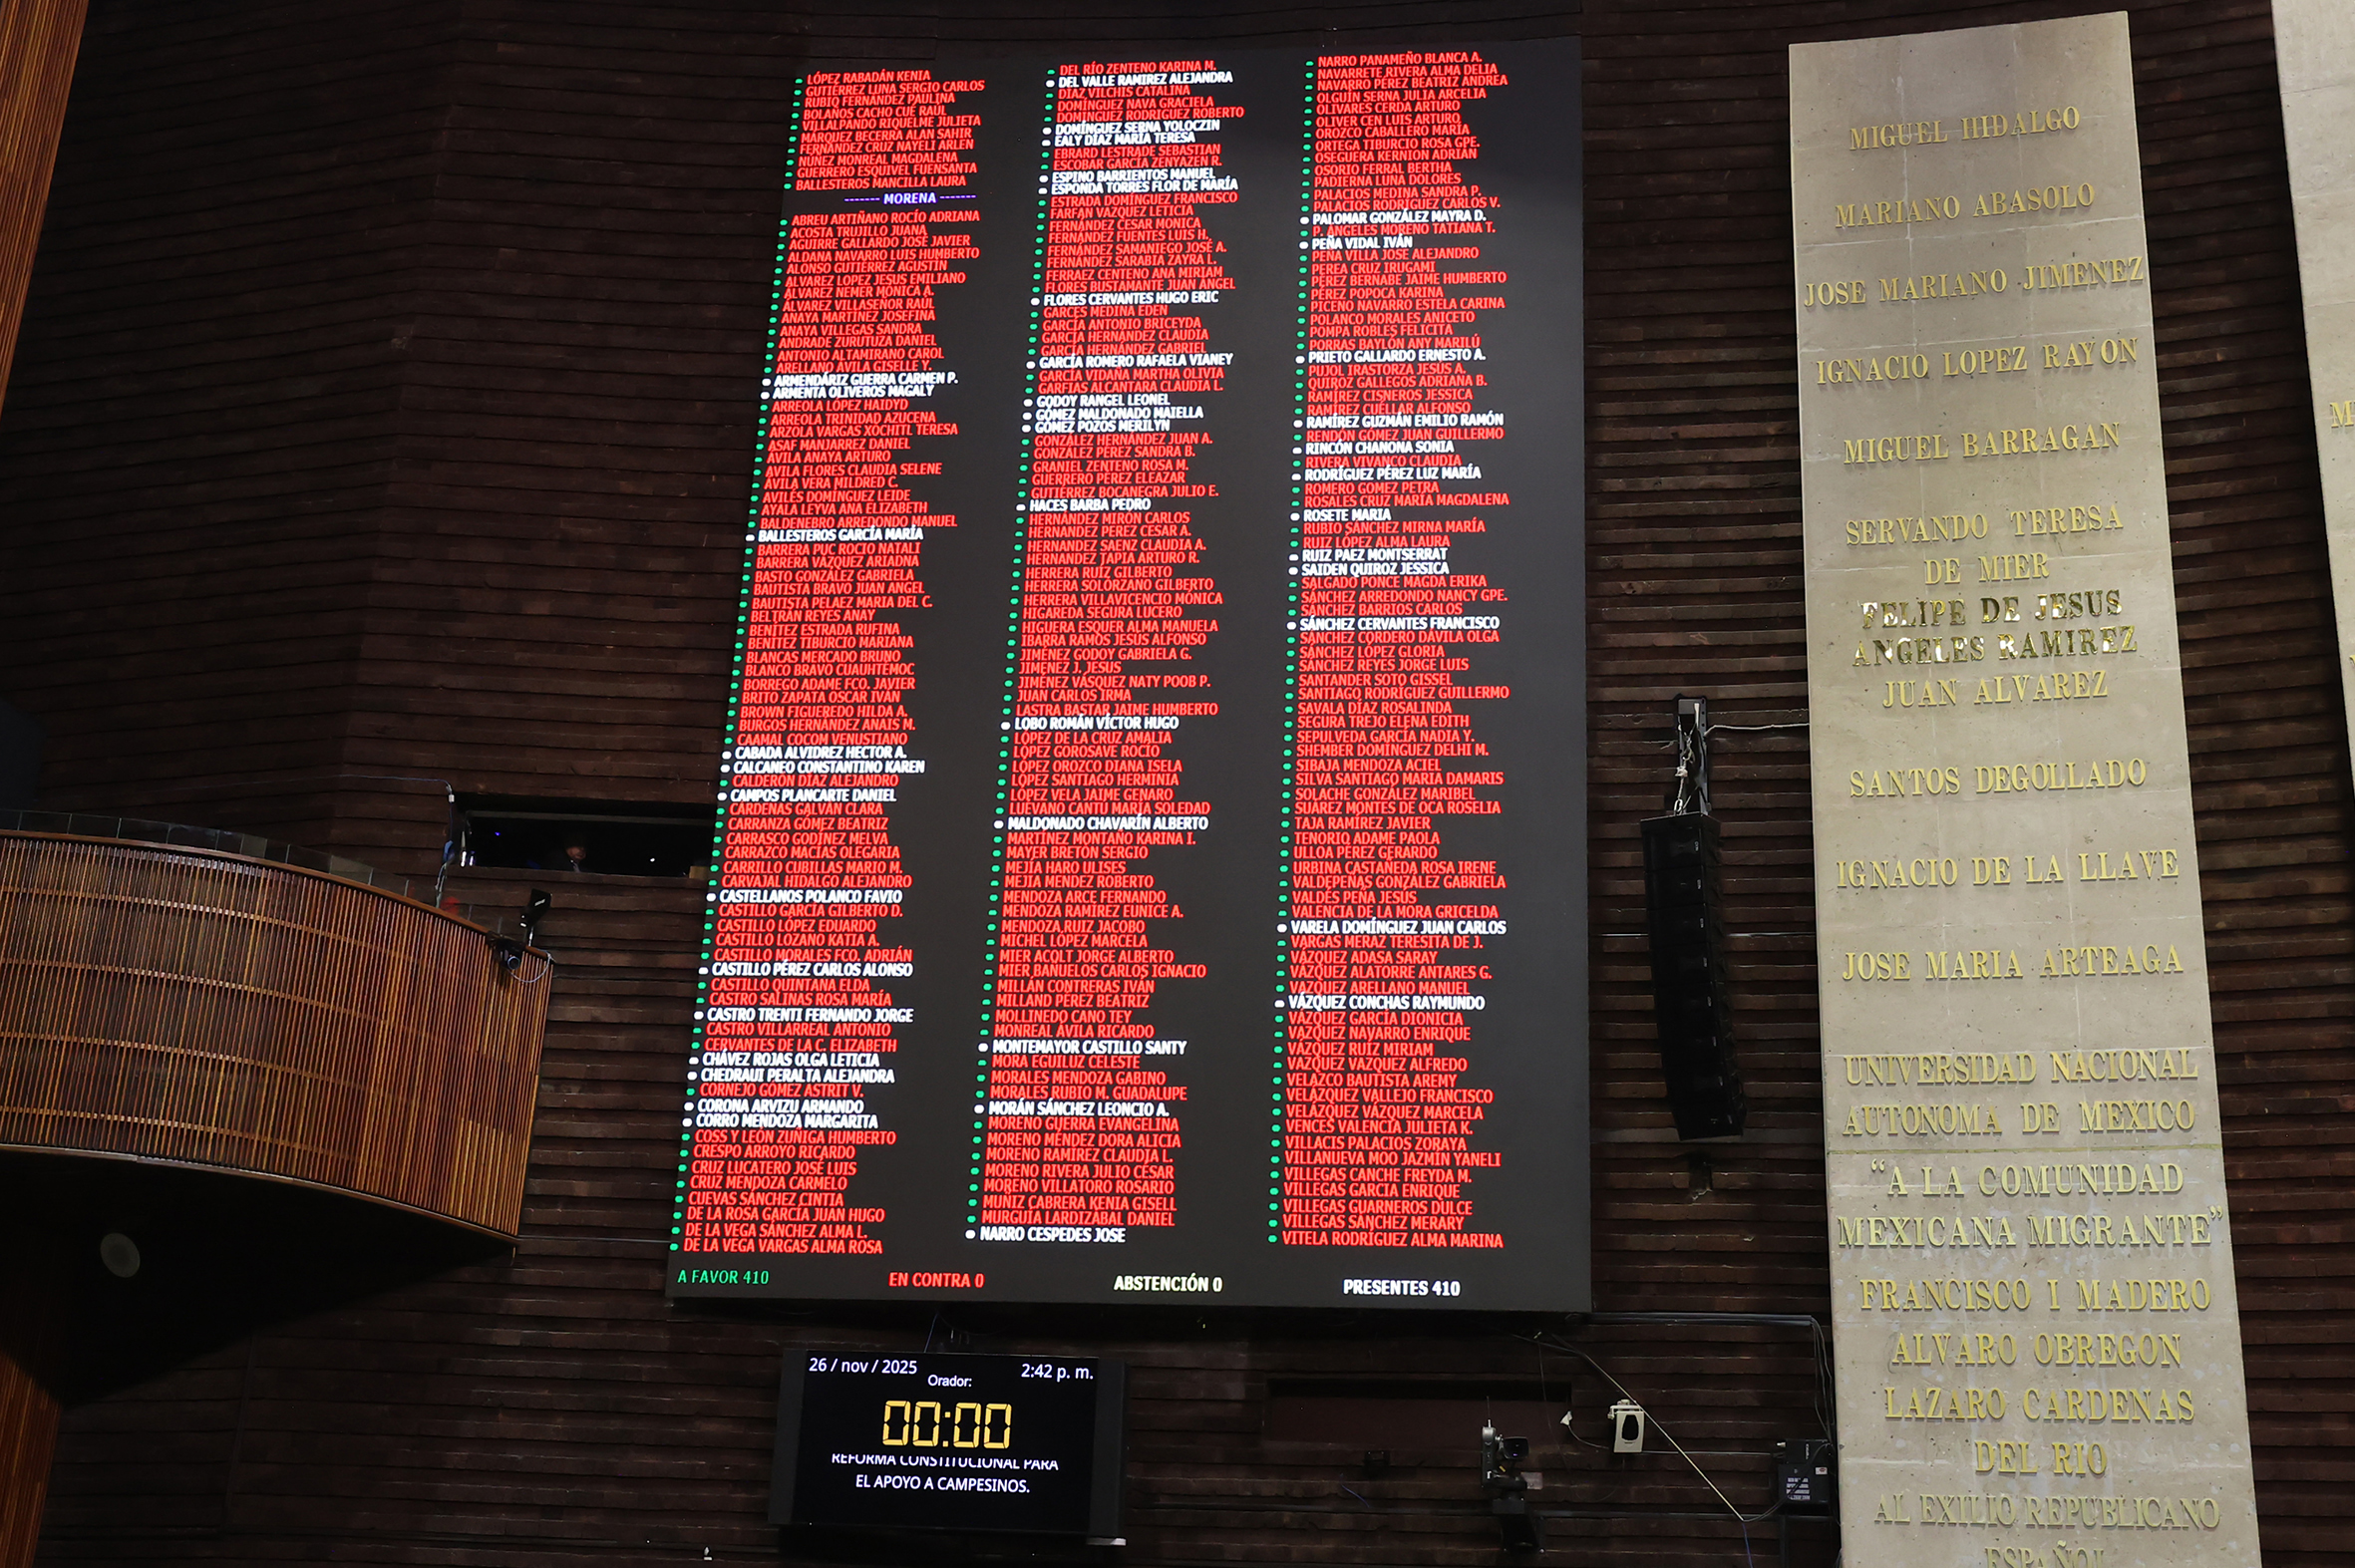 LÓPEZ RABADÁN KENIA
GUTIÉRREZ LUNA SERGIO CARLOS
RUBIO FERNÁNDEZ PAULINA
BOLAÑOS CACHO CUÉ RAÚL
VILLALPANDO RIQUELME JULIETA
MÁRQUEZ BECERRA ALAN SAHIR
FERNÁNDEZ CRUZ NAYELI ARLEN
NÚÑEZ MONREAL MAGDALENA
GUERRERO ESQUIVEL FUENSANTA
BALLESTEROS MANCILLA LAURA
------- MORENA -------
ABREU ARTIÑANO ROCÍO ADRIANA
ACOSTA TRUJILLO JUANA
AGUIRRE GALLARDO JOSÉ JAVIER
ALDANA NAVARRO LUIS HUMBERTO
ALONSO GUTIÉRREZ AGUSTÍN
ÁLVAREZ LÓPEZ JESÚS EMILIANO
ÁLVAREZ NEMER MÓNICA A.
ÁLVAREZ VILLASEÑOR RAÚL
ANAYA MARTÍNEZ JOSEFINA
ANAYA VILLEGAS SANDRA
ANDRADE ZURUTUZA DANIEL
ANTONIO ALTAMIRANO CAROL
ARELLANO ÁVILA GISELLE Y.
ARMENDÁRIZ GUERRA CARMEN P.
ARMENTA OLIVEROS MAGALY
ARREOLA LÓPEZ HAIDYD
ARREOLA TRINIDAD AZUCENA
ARZOLA VARGAS XÓCHITL TERESA
ASAF MANJARREZ DANIEL
ÁVILA ANAYA ARTURO
ÁVILA FLORES CLAUDIA SELENE
ÁVILA VERA MILDRED C.
AVILÉS DOMÍNGUEZ LEIDE
AYALA LEYVA ANA ELIZABETH
BALDENEBRO ARREDONDO MANUEL
BALLESTEROS GARCÍA MARÍA
BARRERA PUC ROCÍO NATALI
BARRERA VÁZQUEZ ARIADNA
BASTO GONZÁLEZ GABRIELA
BAUTISTA BRAVO JUAN ÁNGEL
BAUTISTA PELÁEZ MARÍA DEL C.
BELTRÁN REYES ANAY
BENÍTEZ ESTRADA RUFINA
BENÍTEZ TIBURCIO MARIANA
BLANCAS MERCADO BRUNO
BLANCO BRAVO CUAUHTÉMOC
BORREGO ADAME FCO. JAVIER
BRITO ZAPATA ÓSCAR IVÁN
BROWN FIGUEREDO HILDA A.
BURGOS HERNÁNDEZ ANAIS M.
CAAMAL COCOM VENUSTIANO
CABADA ALVIDREZ HÉCTOR A.
CALCÁNEO CONSTANTINO KAREN
CALDERÓN DÍAZ ALEJANDRO
CAMPOS PLANCARTE DANIEL
CÁRDENAS GALVÁN CLARA
CARRANZA GÓMEZ BEATRIZ
CARRASCO GODÍNEZ MELVA
CARRAZCO MACÍAS OLEGARIA
CARRILLO CUBILLAS MARIO M.
CARVAJAL HIDALGO ALEJANDRO
CASTELLANOS POLANCO FAVIO
CASTILLO GARCÍA GILBERTO D.
CASTILLO LÓPEZ EDUARDO
CASTILLO LOZANO KATIA A.
CASTILLO MORALES FCO. ADRIÁN
CASTILLO PÉREZ CARLOS ALONSO
CASTILLO QUINTANA ELDA
CASTRO SALINAS ROSA MARÍA
CASTRO TRENTI FERNANDO JORGE
CASTRO VILLARREAL ANTONIO
CERVANTES DE LA C. ELIZABETH
CHÁVEZ ROJAS OLGA LETICIA
CHEDRAUI PERALTA ALEJANDRA
CORNEJO GÓMEZ ASTRIT V.
CORONA ARVIZU ARMANDO
CORRO MENDOZA MARGARITA
COSS Y LEÓN ZÚÑIGA HUMBERTO
CRESPO ARROYO RICARDO
CRUZ LUCATERO JOSÉ LUIS
CRUZ MENDOZA CARMELO
CUEVAS SÁNCHEZ CINTIA
DE LA ROSA GARCÍA JUAN HUGO
DE LA VEGA SÁNCHEZ ALMA L.
DE LA VEGA VARGAS ALMA ROSA
DEL RÍO ZENTENO KARINA M.
DEL VALLE RAMÍREZ ALEJANDRA
DÍAZ VILCHIS CATALINA
DOMÍNGUEZ NAVA GRACIELA
DOMÍNGUEZ RODRÍGUEZ ROBERTO
DOMÍNGUEZ SERNA YOLOCZIN
EALY DÍAZ MARÍA TERESA
EBRARD LESTRADE SEBASTIÁN
ESCOBAR GARCÍA ZENYAZEN R.
ESPINO BARRIENTOS MANUEL
ESPONDA TORRES FLOR DE MARÍA
ESTRADA DOMÍNGUEZ FRANCISCO
FARFÁN VÁZQUEZ LETICIA
FERNÁNDEZ CÉSAR MÓNICA
FERNÁNDEZ FUENTES LUIS H.
FERNÁNDEZ SAMANIEGO JOSÉ A.
FERNÁNDEZ SARABIA ZAYRA L.
FERRAEZ CENTENO ANA MIRIAM
FLORES BUSTAMANTE JUAN ÁNGEL
FLORES CERVANTES HUGO ERIC
GARCÉS MEDINA EDÉN
GARCÍA ANTONIO BRICEYDA
GARCÍA HERNÁNDEZ CLAUDIA
GARCÍA HERNÁNDEZ GABRIEL
GARCÍA ROMERO RAFAELA VIANEY
GARCÍA VIDAÑA MARTHA OLIVIA
GARFIAS ALCÁNTARA CLAUDIA L.
GODOY RANGEL LEONEL
GÓMEZ MALDONADO MAIELLA
GÓMEZ POZOS MERILYN
GONZÁLEZ HERNÁNDEZ JUAN A.
GONZÁLEZ PÉREZ SANDRA B.
GRANIEL ZENTENO ROSA M.
GUERRERO PÉREZ ELEAZAR
GUTIÉRREZ BOCANEGRA JULIO E.
HACES BARBA PEDRO
HERNÁNDEZ MIRÓN CARLOS
HERNÁNDEZ PÉREZ CÉSAR A.
HERNÁNDEZ SÁENZ CLAUDIA A.
HERNÁNDEZ TAPIA ARTURO R.
HERRERA RUÍZ GILBERTO
HERRERA SOLÓRZANO GILBERTO
HERRERA VILLAVICENCIO MÓNICA
HIGAREDA SEGURA LUCERO
HIGUERA ESQUER ALMA MANUELA
IBARRA RAMOS JESÚS ALFONSO
JIMÉNEZ GODOY GABRIELA G.
JIMÉNEZ J. JESÚS
JIMÉNEZ VÁSQUEZ NATY POOB P.
JUAN CARLOS IRMA
LASTRA BASTAR JAIME HUMBERTO
LOBO ROMÁN VÍCTOR HUGO
LÓPEZ DE LA CRUZ AMALIA
LÓPEZ GOROSAVE ROCÍO
LÓPEZ OROZCO DIANA ISELA
LÓPEZ SANTIAGO HERMINIA
LÓPEZ VELA JAIME GENARO
LUÉVANO CANTÚ MARÍA SOLEDAD
MALDONADO CHAVARÍN ALBERTO
MARTÍNEZ MONTAÑO KARINA I.
MAYER BRETÓN SERGIO
MEJÍA HARO ULISES
MEJÍA MÉNDEZ ROBERTO
MENDOZA ARCE FERNANDO
MENDOZA RAMÍREZ EUNICE A.
MENDOZA RUIZ JACOBO
MICHEL LÓPEZ MARCELA
MIER ACOLT JORGE ALBERTO
MIER BAÑUELOS CARLOS IGNACIO
MILLÁN CONTRERAS IVÁN
MILLAND PÉREZ BEATRIZ
MOLLINEDO CANO TEY
MONREAL ÁVILA RICARDO
MONTEMAYOR CASTILLO SANTY
MORA EGUILUZ CELESTE
MORALES MENDOZA GABINO
MORALES RUBIO M. GUADALUPE
MORÁN SÁNCHEZ LEONCIO A.
MORENO GUERRA EVANGELINA
MORENO MÉNDEZ DORA ALICIA
MORENO RAMÍREZ CLAUDIA L.
MORENO RIVERA JULIO CÉSAR
MORENO VILLATORO ROSARIO
MUÑIZ CABRERA KENIA GISELL
MURGUÍA LARDIZÁBAL DANIEL
NARRO CÉSPEDES JOSÉ
NARRO PANAMEÑO BLANCA A.
NAVARRETE RIVERA ALMA DELIA
NAVARRO PÉREZ BEATRIZ ANDREA
OLGUÍN SERNA JULIA ARCELIA
OLIVARES CERDA ARTURO
OLIVER CEN LUIS ARTURO
OROZCO CABALLERO MARÍA
ORTEGA TIBURCIO ROSA GPE.
OSEGUERA KERNION ADRIÁN
OSORIO FERRAL BERTHA
PADIERNA LUNA DOLORES
PALACIOS MEDINA SANDRA P.
PALACIOS RODRÍGUEZ CARLOS V.
PALOMAR GONZÁLEZ MAYRA D.
P. ÁNGELES MORENO TATIANA T.
PEÑA VIDAL IVÁN
PEÑA VILLA JOSÉ ALEJANDRO
PEREA CRUZ IRUGAMI
PÉREZ BERNABE JAIME HUMBERTO
PÉREZ POPOCA KARINA
PICENO NAVARRO ESTELA CARINA
POLANCO MORALES ANICETO
POMPA ROBLES FELÍCITA
PORRAS BAYLÓN ANY MARILÚ
PRIETO GALLARDO ERNESTO A.
PUJOL IRASTORZA JESÚS A.
QUIROZ GALLEGOS ADRIANA B.
RAMÍREZ CISNEROS JESSICA
RAMÍREZ CUÉLLAR ALFONSO
RAMÍREZ GUZMÁN EMILIO RAMÓN
RENDÓN GÓMEZ JUAN GUILLERMO
RINCÓN CHANONA SONIA
RIVERA VIVANCO CLAUDIA
RODRÍGUEZ PÉREZ LUZ MARÍA
ROMERO GÓMEZ PETRA
ROSALES CRUZ MARÍA MAGDALENA
ROSETE MARIA
RUBIO SÁNCHEZ MIRNA MARÍA
RUIZ LÓPEZ ALMA LAURA
RUIZ PAEZ MONTSERRAT
SAIDEN QUIROZ JESSICA
SALGADO PONCE MAGDA ERIKA
SÁNCHEZ ARREDONDO NANCY GPE.
SÁNCHEZ BARRIOS CARLOS
SÁNCHEZ CERVANTES FRANCISCO
SÁNCHEZ CORDERO DÁVILA OLGA
SÁNCHEZ LÓPEZ GLORIA
SÁNCHEZ REYES JORGE LUIS
SANTANDER SOTO GISSEL
SANTIAGO RODRÍGUEZ GUILLERMO
SAVALA DÍAZ ROSALINDA
SEGURA TREJO ELENA EDITH
SEPÚLVEDA GARCÍA NADIA Y.
SHEMBER DOMÍNGUEZ DELHI M.
SIBAJA MENDOZA ACIEL
SILVA SANTIAGO MARÍA DAMARIS
SOLACHE GONZÁLEZ MARIBEL
SUÁREZ MONTES DE OCA ROSELIA
TAJA RAMÍREZ JAVIER
TENORIO ADAME PAOLA
ULLOA PÉREZ GERARDO
URBINA CASTAÑEDA ROSA IRENE
VALDEPEÑAS GONZÁLEZ GABRIELA
VALDÉS PEÑA JESÚS
VALENCIA DE LA MORA GRICELDA
VARELA DOMÍNGUEZ JUAN CARLOS
VARGAS MERAZ TERESITA DE J.
VÁZQUEZ ADASA SARAY
VÁZQUEZ ALATORRE ANTARES G.
VÁZQUEZ ARELLANO MANUEL
VÁZQUEZ CONCHAS RAYMUNDO
VÁZQUEZ GARCÍA DIONICIA
VÁZQUEZ NAVARRO ENRIQUE
VÁZQUEZ RUÍZ MIRIAM
VÁZQUEZ VÁZQUEZ ALFREDO
VELAZCO BAUTISTA AREMY
VELÁZQUEZ VALLEJO FRANCISCO
VELÁZQUEZ VÁZQUEZ MARCELA
VENCES VALENCIA JULIETA K.
VILLACIS PALACIOS ZORAYA
VILLANUEVA MOO JAZMÍN YANELI
VILLEGAS CANCHE FREYDA M.
VILLEGAS GARCÍA ENRIQUE
VILLEGAS GUARNEROS DULCE
VILLEGAS SÁNCHEZ MERARY
VITELA RODRÍGUEZ ALMA MARINA
A FAVOR 410
EN CONTRA 0
ABSTENCIÓN 0
PRESENTES 410
26 / nov / 2025
2:42 p. m.
Orador:
00:00
REFORMA CONSTITUCIONAL PARA
EL APOYO A CAMPESINOS.
MIGUEL HIDALGO
MARIANO ABASOLO
JOSE MARIANO JIMENEZ
IGNACIO LOPEZ RAYON
MIGUEL BARRAGAN
SERVANDO TERESA
DE MIER
FELIPE DE JESUS
ANGELES RAMIREZ
JUAN ALVAREZ
SANTOS DEGOLLADO
IGNACIO DE LA LLAVE
JOSE MARIA ARTEAGA
UNIVERSIDAD NACIONAL
AUTONOMA DE MEXICO
“A LA COMUNIDAD
MEXICANA MIGRANTE”
FRANCISCO I MADERO
ALVARO OBREGON
LAZARO CARDENAS
DEL RIO
AL EXILIO REPUBLICANO
ESPAÑOL